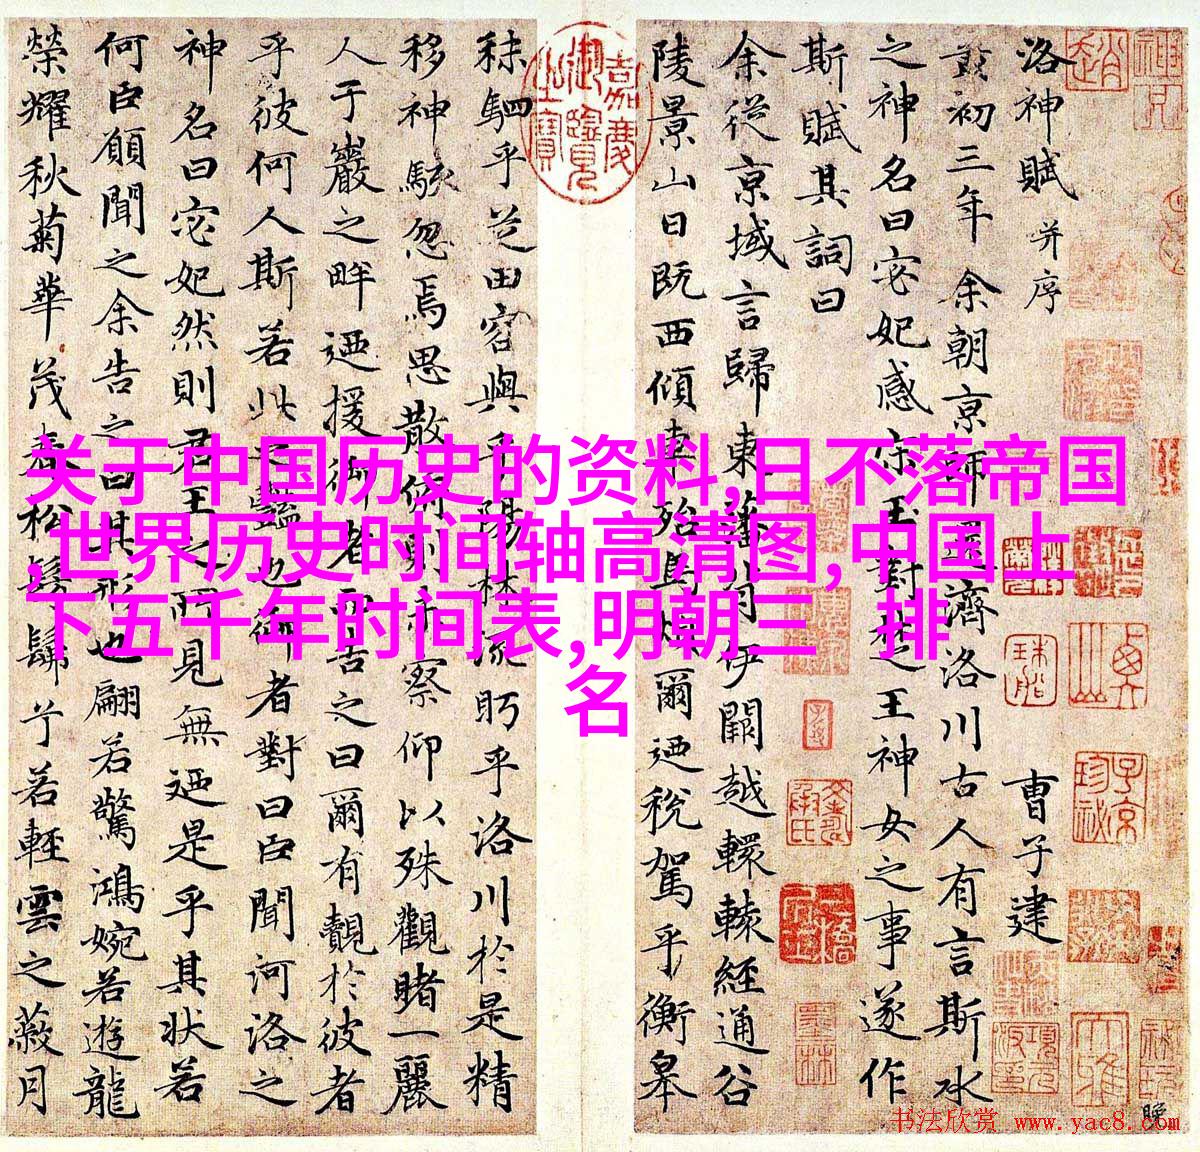 关于中国历史的资料,日不落帝国
,世界历史时间轴高清图,中国上
下五千年时间表,明朝三 排
名
洛神賦 并序 曹子建
黃初三年余朝京師還濟洛川古人有言斯水
之神名曰宓妃感宋玉對楚王神女之事遂作
斯賦其詞曰
余從京域言歸東藩背伊闕越轘轅經通谷
陵景山日既西傾車殆馬煩爾迺稅駕乎衡皋
嘉慶御覽之寶
秣駟乎芝田容與乎陽林流眄乎洛川於是精
移神駭忽焉思散俯則未察仰以殊觀睹一麗
人于巖之畔迺援御者而告之曰爾有覿於彼者
乎彼何人斯若此之豔也御者對曰臣聞河洛之
神名曰宓妃然則君王之所見無迺是乎其状若
何臣願聞之余告之曰其形也翩若驚鴻婉若遊龍
榮耀秋菊華茂春松髣髴兮若輕雲之蔽月
书法欣赏 www.yac8.com